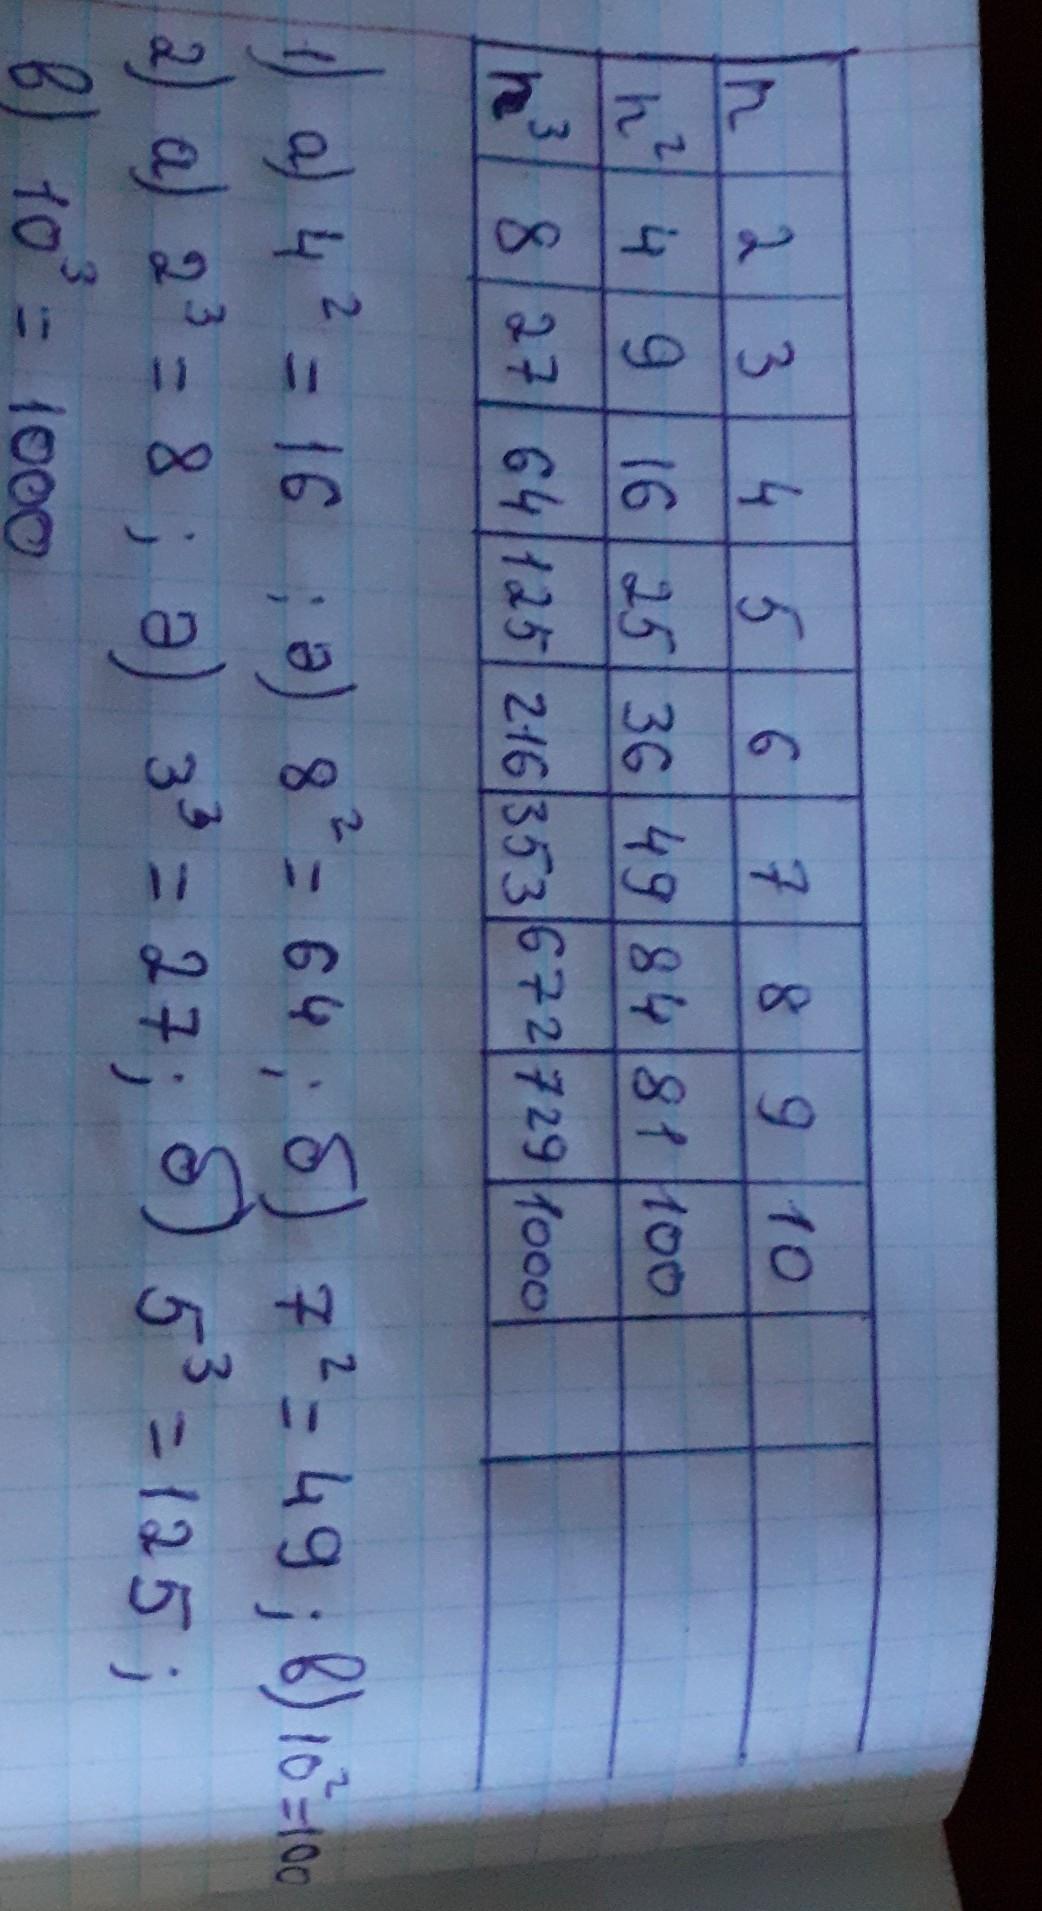 n 2 3 4 5 6 7 8 9 10
n² 4 9 16 25 36 49 84 81 100
n³ 8 27 64 125 216 353 672 729 1000
1) а) 4² = 16 ; ә) 8² = 64 ; б) 7² = 49 ; в) 10² = 100
2) а) 2³ = 8 ; ә) 3³ = 27 ; б) 5³ = 125 ;
в) 10³ = 1000